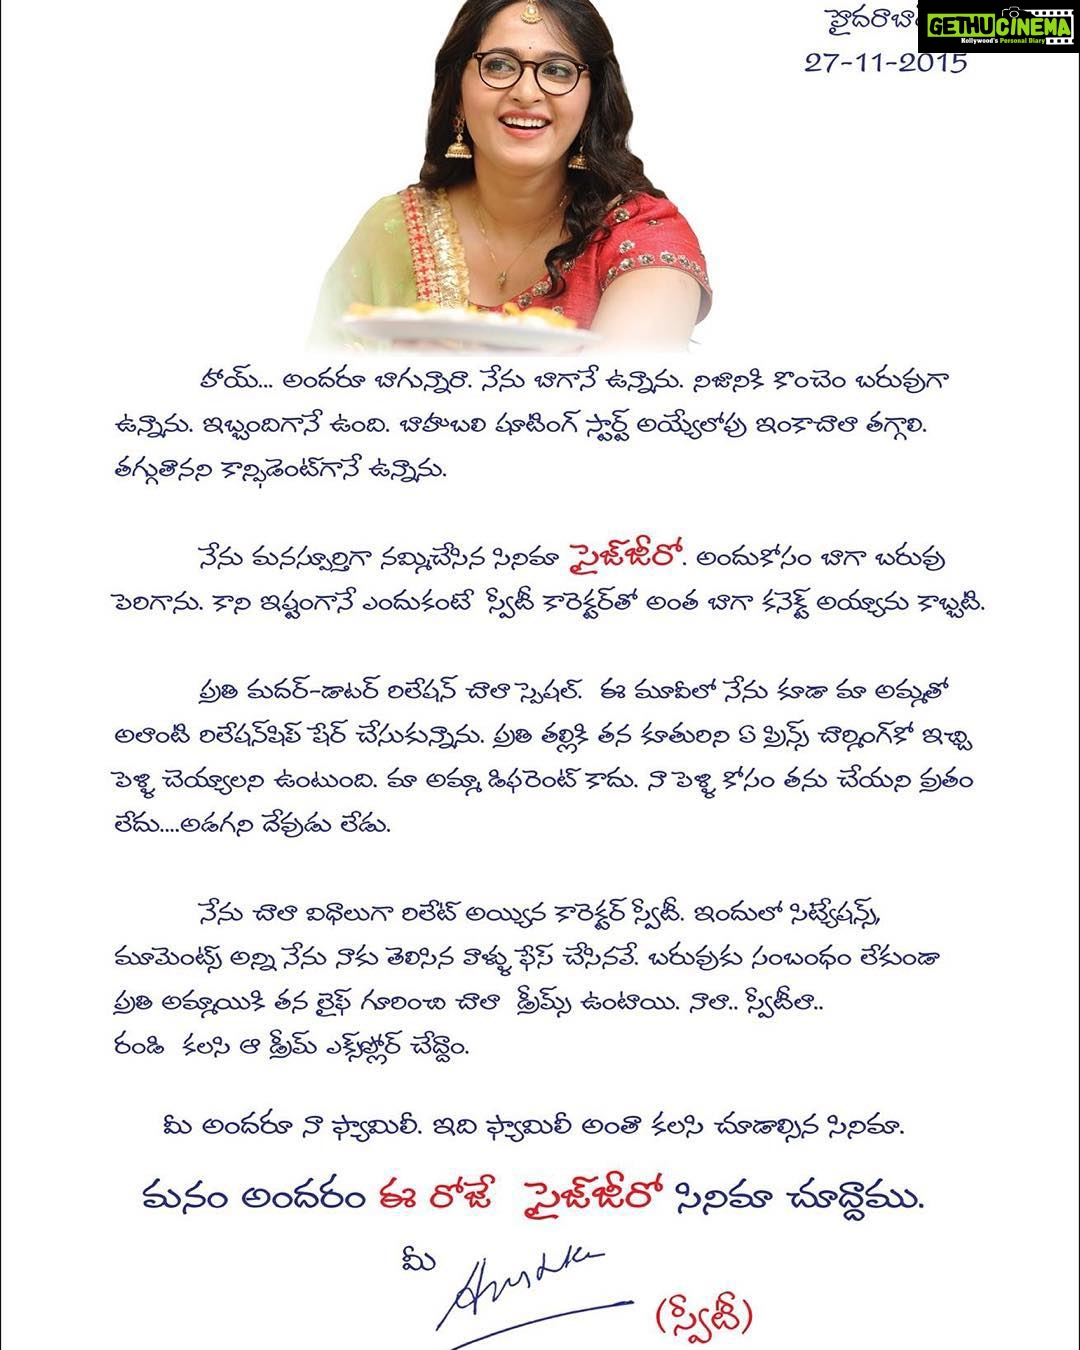 GETHUCINEMA
Kollywood's Personal Diary
27-11-2015
హాయ్... అందరూ బాగున్నారా. నేను బాగానే ఉన్నాను. నిజానికి కొంచెం బరువుగా
ఉన్నాను. ఇబ్బందిగానే ఉంది. బాహుబలి షూటింగ్ స్టార్ట్ అయ్యేలోపు ఇంకాచాలా తగ్గాలి.
తగ్గుతానని కాన్ఫిడెంట్‌గానే ఉన్నాను.
నేను మనస్ఫూర్తిగా నమ్మిచేసిన సినిమా సైజ్‌జీరో. అందుకోసం బాగా బరువు
పెరిగాను. కాని ఇష్టంగానే ఎందుకంటే స్వీటీ కారెక్టర్‌తో అంత బాగా కనెక్ట్ అయ్యాను కాబ్బటి.
ప్రతి మదర్-డాటర్ రిలేషన్ చాలా స్పెషల్. ఈ మూవీలో నేను కూడా మా అమ్మతో
అలాంటి రిలేషన్‌షిప్ షేర్ చేసుకున్నాను. ప్రతి తల్లికి తన కూతురిని ఏ ప్రిన్స్ చార్మింగ్‌కో ఇచ్చి
పెళ్ళి చెయ్యాలని ఉంటుంది. మా అమ్మా డిఫరెంట్ కాదు. నా పెళ్ళి కోసం తను చేయని వ్రతం
లేదు....అడగని దేవుడు లేడు.
నేను చాలా విధాలుగా రిలేట్ అయ్యిన కారెక్టర్ స్వీటీ. ఇందులో సిట్యేషన్స్,
మూమెంట్స్ అన్ని నేను నాకు తెలిసిన వాళ్ళు ఫేస్ చేసినవే. బరువుకు సంబంధం లేకుండా
ప్రతి అమ్మాయికి తన లైఫ్ గూరించి చాలా డ్రీమ్స్ ఉంటాయి. నాలా.. స్వీటీలా..
రండి కలసి ఆ డ్రీమ్ ఎక్స్‌ప్లోర్ చేద్దాం.
మీ అందరూ నా ఫ్యామిలీ. ఇది ఫ్యామిలీ అంతా కలసి చూడాల్సిన సినిమా.
మనం అందరం ఈ రోజే సైజ్‌జీరో సినిమా చూద్దాము.
మీ
Anushka
(స్వీటీ)